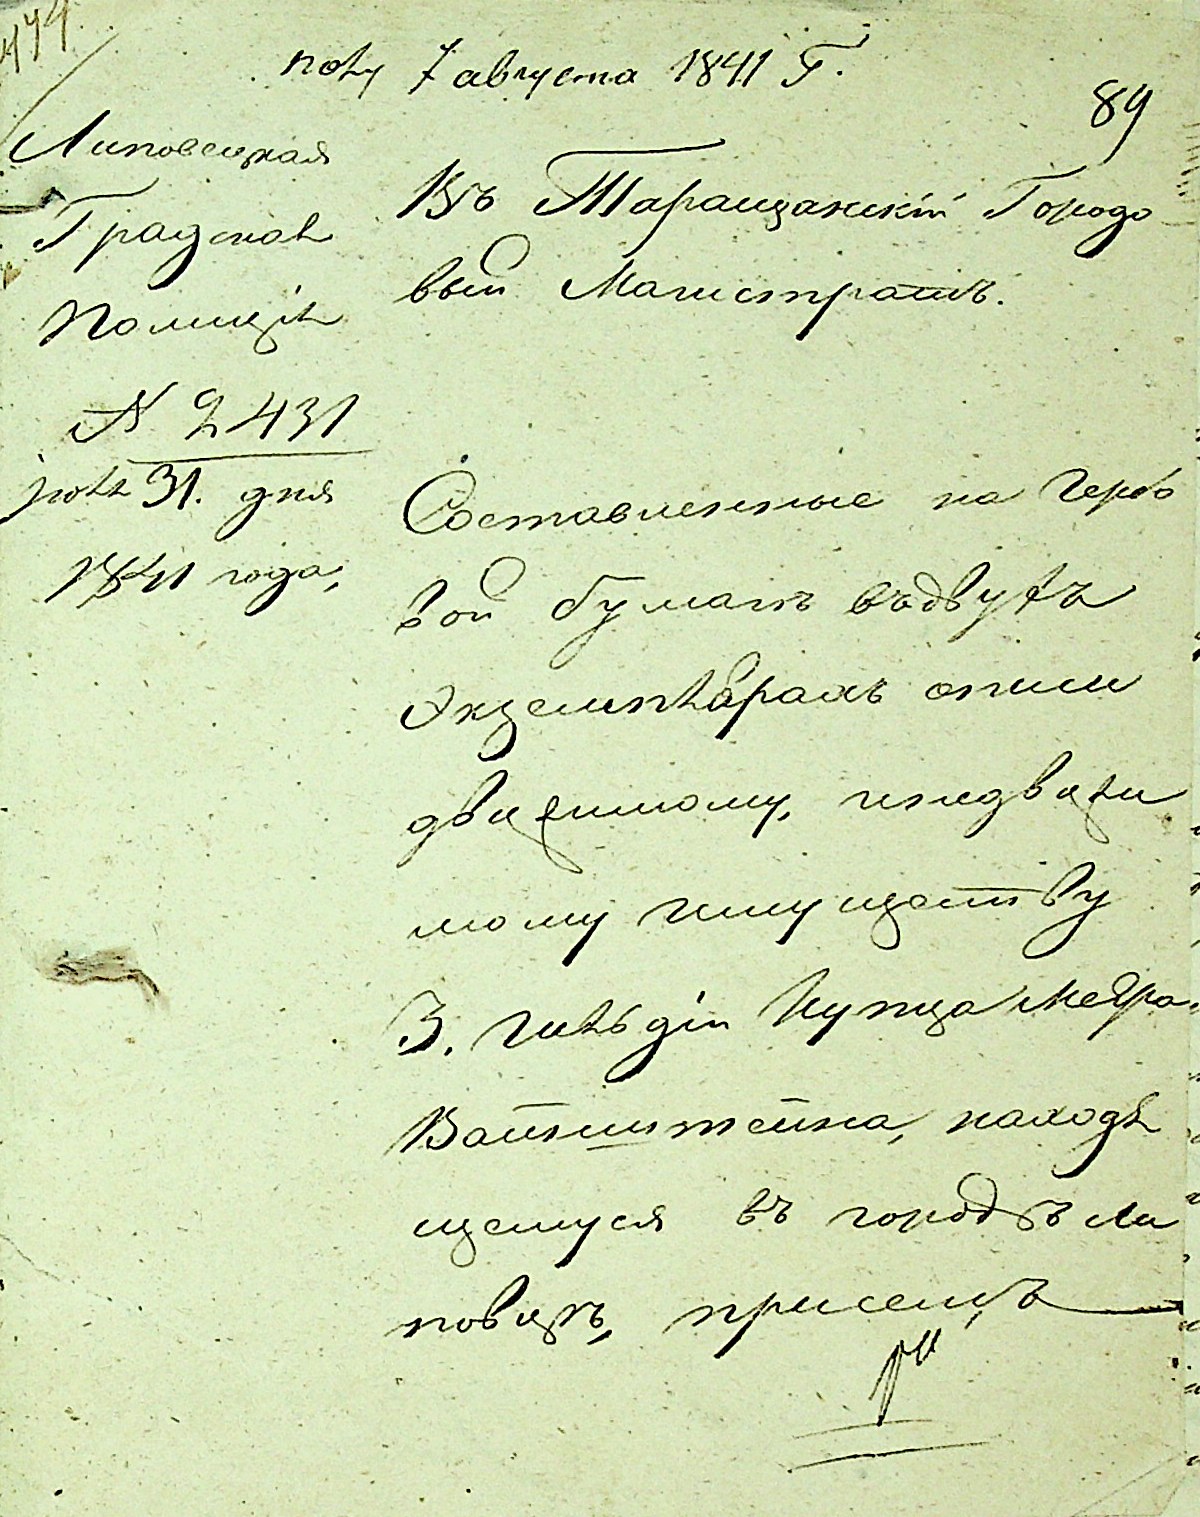 474
полу 7 августа 1841 Г.
89
Липовецкая
Градская
Полиція
N 2431
іюля 31. дня
1841 года,
Въ Таращанскій Городо
вый Магистратъ.
Составленные на гербо
вой бумагѣ въ двухъ
экземплярахъ описи
движимому, и недвижи
мому имуществу
3. гильдіи купца Меера
Вайнштейна, находя
щемуся въ городѣ Ли
повцѣ, при семъ